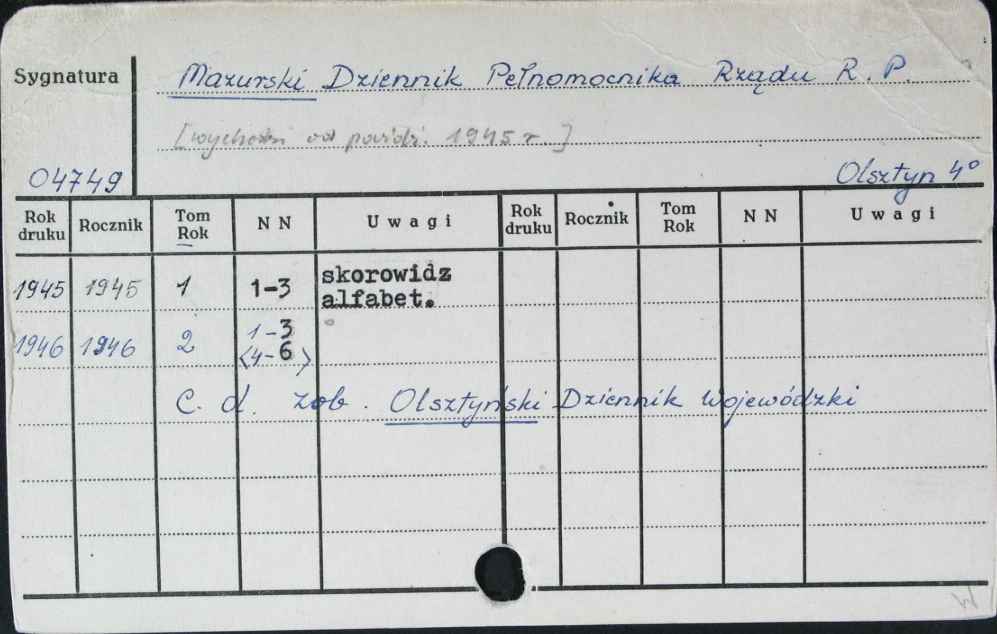 Sygnatura
Mazurski Dziennik Pełnomocnika Rządu R. P.
[wychodzi od paździ. 1945 r.]
04749
Olsztyn 4°
Rok druku Rocznik Tom Rok NN Uwagi Rok druku Rocznik Tom Rok NN Uwagi
1945 1945 1 1-3 skorowidz alfabet.
1946 1946 2 1-3 <4-6>
C. d. zob. Olsztyński Dziennik Wojewódzki
W